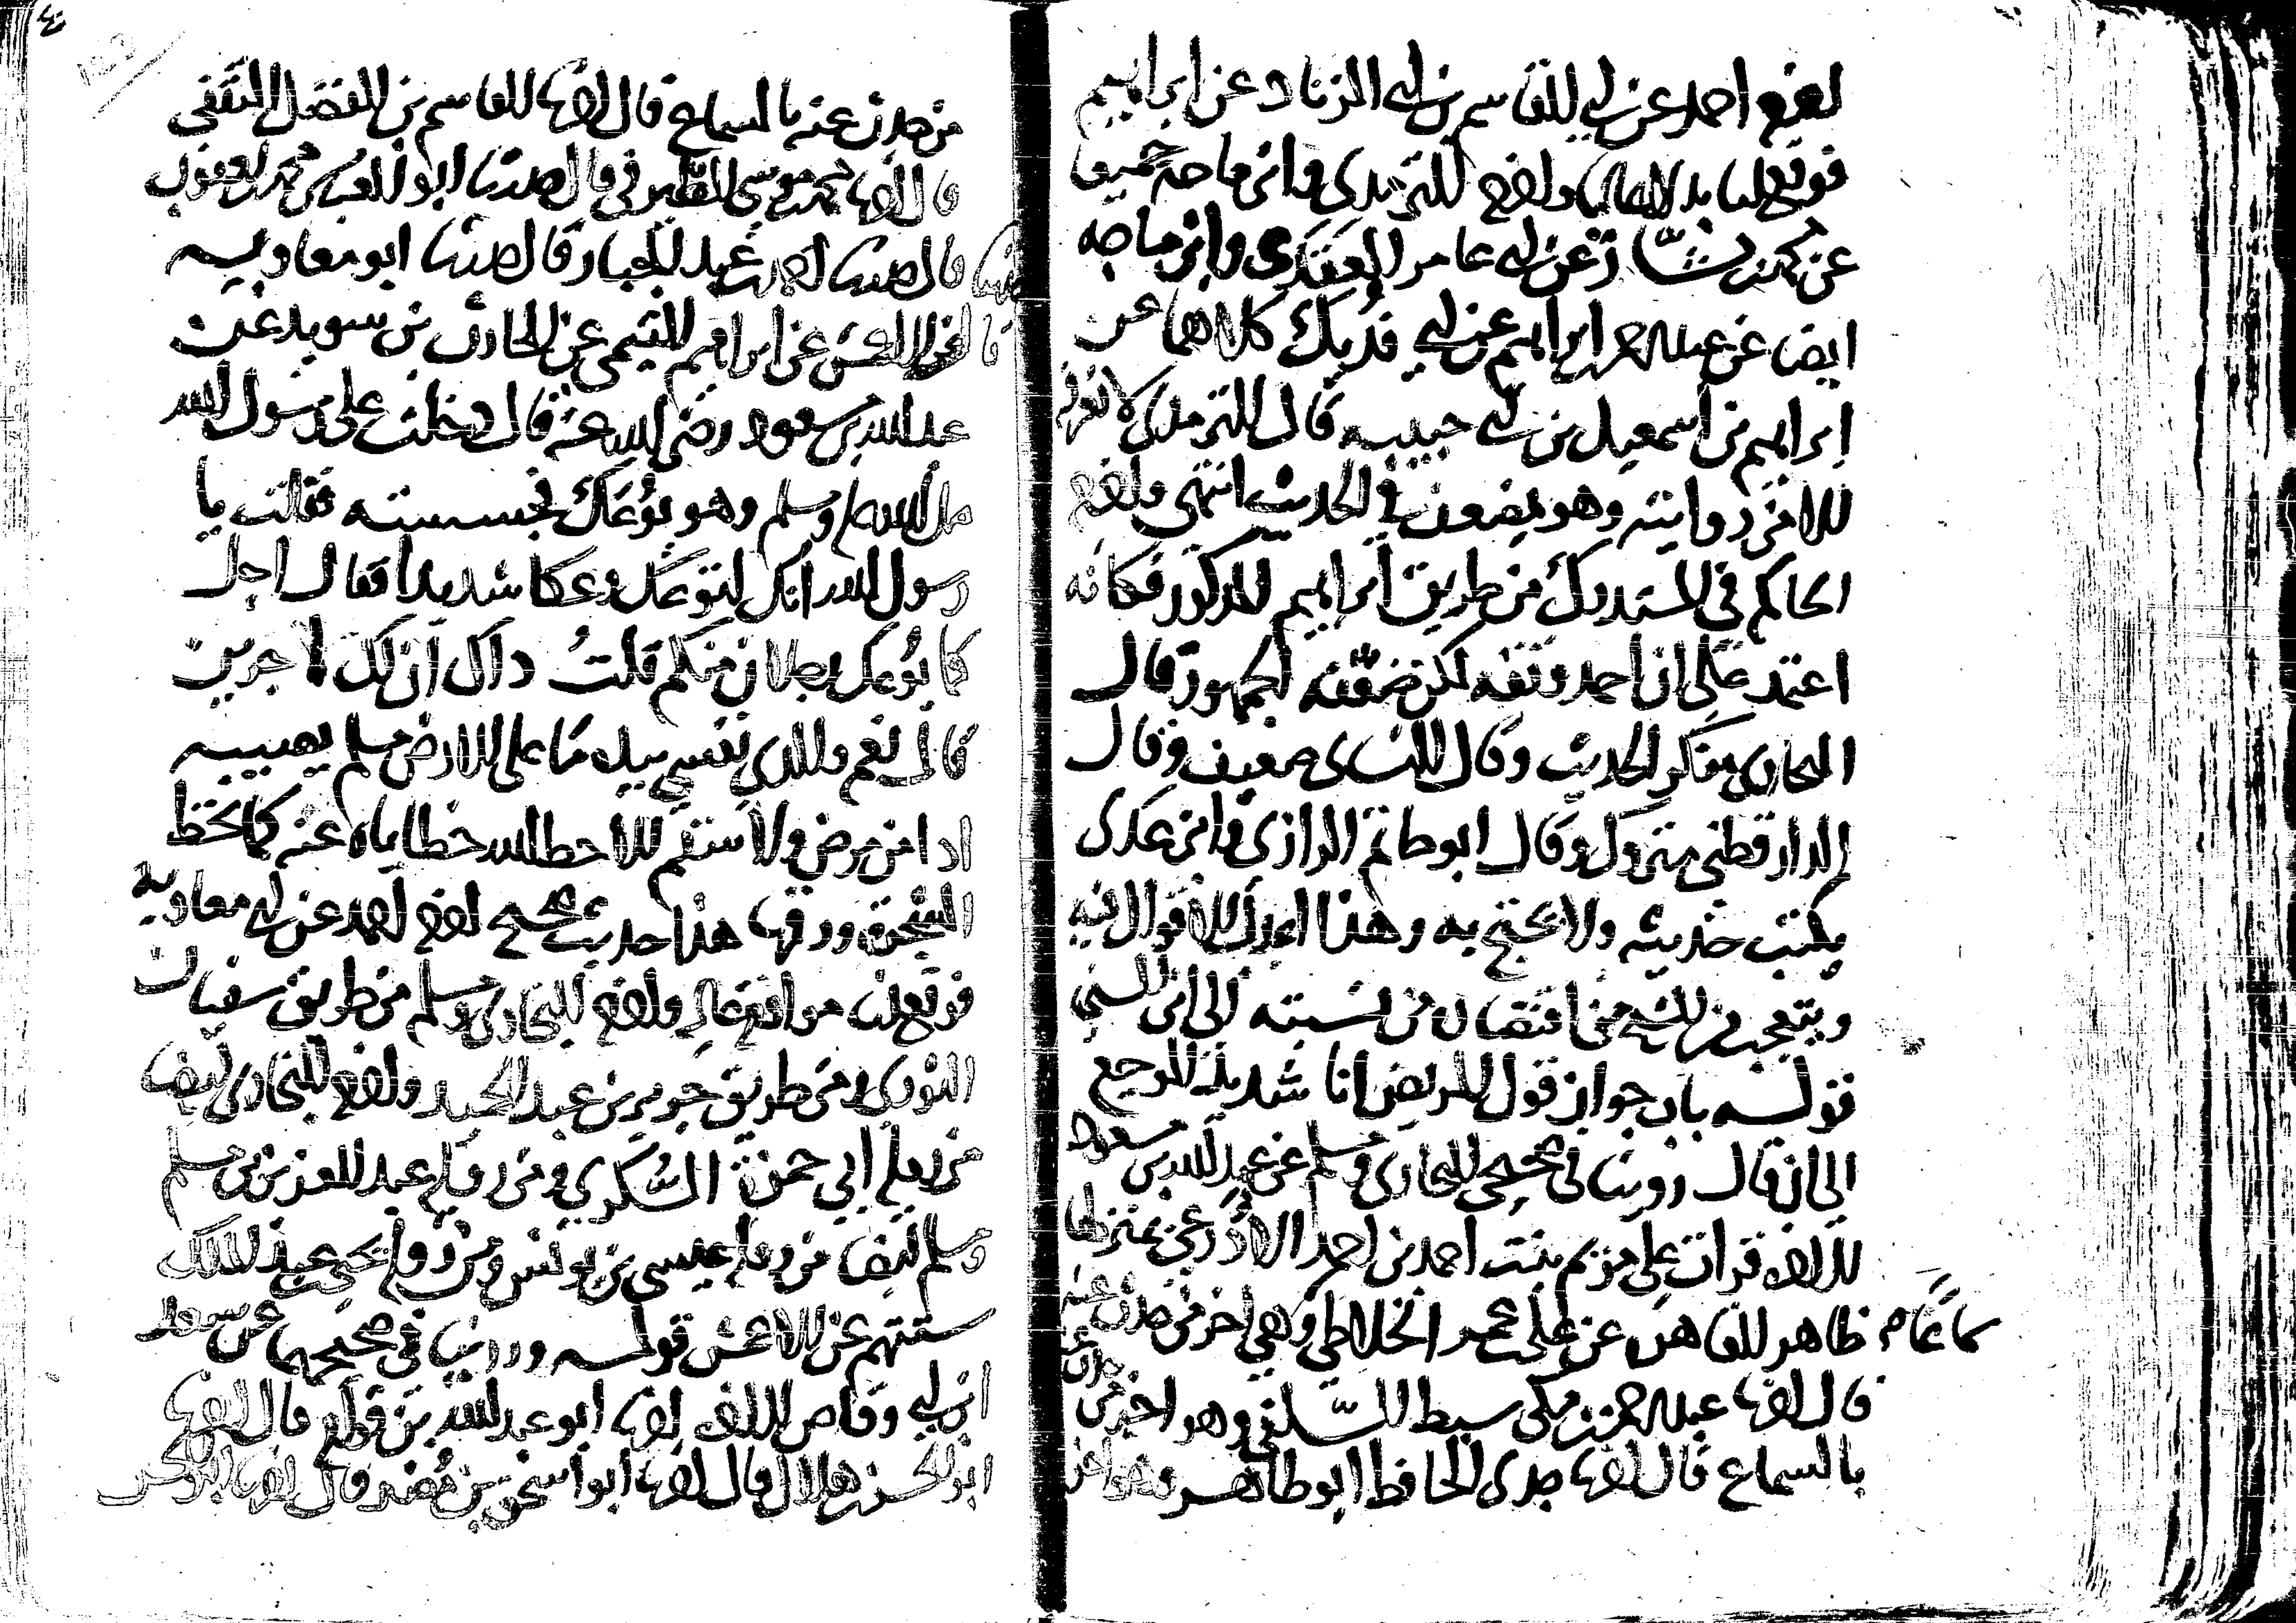 اخرجه احمد عن ابي القاسم بن ابي الزناد عن ابراهيم
فوقع لنا بدلا عاليا واخرجه الترمذي وابن ماجه جميعا
عن محمد بن بشار عن ابي عامر العقدي وابن ماجه
ايضا عن عبد الرحمن بن ابراهيم عن ابي فديك كلاهما عن
ابراهيم بن اسمعيل بن ابي حبيبه قال الترمذي لا نعرفه
الا من روايته وهو يضعف في الحديث انتهى واخرجه
الحاكم في المستدرك من طريق ابراهيم المذكور فكانه
اعتمد على ان احمد وثقه لكن ضعفه الجمهور قال
البخاري منكر الحديث وقال النسائي ضعيف وقال
الدارقطني متروك وقال ابو حاتم الرازي وابن عدي
يكتب حديثه ولا يحتج به وهذا اعدل الاقوال فيه
ويتعجب من الشيخ من اقتصاره في نسبته الى ابن السني
قوله باب جواز قول المريض انا شديد الوجع
الى ان قال روينا في صحيحي البخاري ومسلم عن عبد الله بن مسعود
قرات على مريم بنت احمد بن احمد الاذرعي بمنزلها
سماعا م ظاهر القاهره عن علي بن عمر الخلاطي وهي اخر من حدث عنه
قال اخبرنا عبد الرحمن بن مكي سبط السلفي وهو اخر من حدث عنه
بالسماع قال اخبرنا جدي الحافظ ابو طاهر وهو اخر
من حدث عنه بالسماع قال اخبرنا القاسم بن الفضل الثقفي
قال اخبرنا محمد بن موسى الصيرفي قال حدثنا ابو العباس محمد بن يعقوب
قال حدثنا احمد بن عبد الجبار قال حدثنا ابو معاويه
عن الاعمش عن ابراهيم التيمي عن الحارث بن سويد عن
عبد الله بن مسعود رضي الله عنه قال دخلت على رسول الله
صلى الله عليه وسلم وهو يوعك فجسسته فقلت يا
رسول الله انك لتوعك وعكا شديدا فقال اجل
كما يوعك رجلان منكم قلت ذاك ان لك اجرين
قال نعم والذي نفسي بيده ما على الارض مسلم يصيبه
اذا من مرض ولا سقم الا حط الله خطاياه عنه كما تحط
الشجرة ورقها هذا حديث صحيح اخرجه احمد عن ابي معاويه
فوقع لنا موافقة عاليه واخرجه البخاري ومسلم من طريق سفيان
الثوري ومن طريق جرير بن عبد الحميد واخرجه البخاري ايضا
من روايه ابي حمزة السكري ومن روايه عبد العزيز بن مسلم
ومسلم ايضا من روايه عيسى بن يونس ومن روايه يحيى بن عبد الملك
ستتهم عن الاعمش قوله وروينا في صحيحهما عن سعد
ابن ابي وقاص اخبرنا ابو عبد الله بن قوام قال اخبرنا
ابو الحسن بن هلال قال اخبرنا ابو اسحق بن مضر قال اخبرنا ابو الحسن